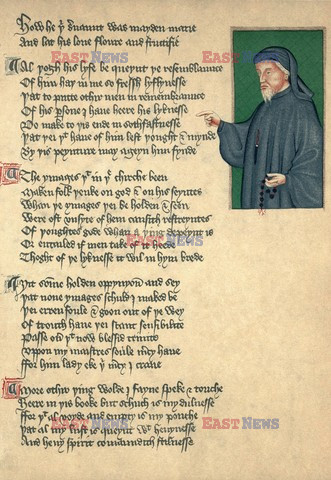 How he þi seruaunt was mayden marie
And lat his loue floure and fructifie
EASTNEWS
EASTNEWS
Al þogh his lyfe be queynt þe resemblaunce
Of him haþ in me so fressh lyflynesse
Þat to putte othir men in remembraunce
Of his psone I haue heere his lyknesse
Do make to þis ende in sothfastnesse
Þat þei þt haue of him lest þought & mynde
By þis peynture may ageyn him fynde
The ymages þt in þe chirche been
Maken folk þenke on god & on his seyntes
Whan þe ymages þei be holden & seen
Were oft vnsyte of hem causith restreyntes
Of þoughtes gode whan a þing depeynt is
EASTNEWS
Or entailed if men take of it heede
Thoght of þe lyknesse it wil in hym brede
Yit somme holden oppynyoun and sey
Þat none ymages schuld I maked be
Þei erren foule & goon out of þe wey
Of trouth haue þei scant sensibilite
Passe ou þt now blessid trinite
Vppon my maistres soule mcy haue
For him lady eke þi mcy I craue
More othir þing wolde I fayne speke & touche
Heere in þis booke but schuch is my dulnesse
For þt al voyde and empty is my pouche
EASTNEWS
EASTNEWS
Þat al my lust is queynt wt heuynesse
And heuy spirit comaundith stilnesse